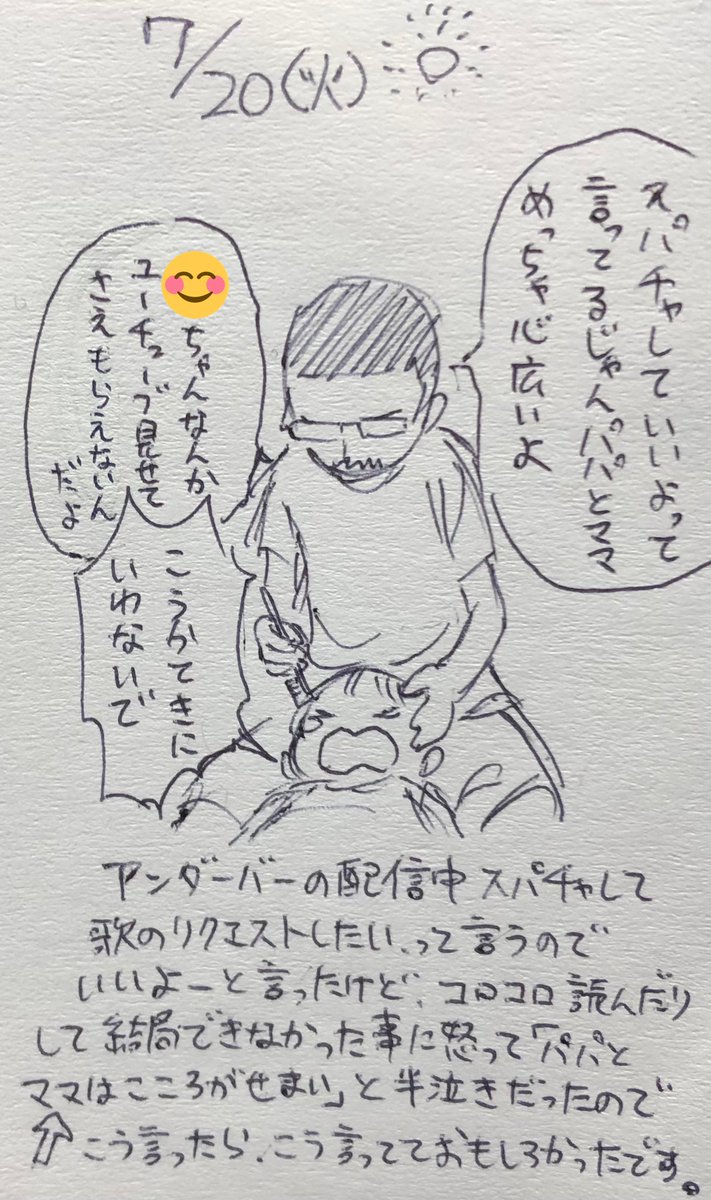 7/20(火)
スパチャしていいよって
言ってるじゃんパパとママ
めっちゃ心広いよ
ちゃんなんか
ユーチューブ見せて
さえもらえないん
だよ
こうかてきに
いわないで
アンダーバーの配信中 スパチャして
歌のリクエストしたい、って言うので
いいよーと言ったけど、コロコロ読んだり
して結局できなかった事に怒って「パパと
ママはこころがせまい」と半泣きだったので
⇧こう言ったら、こう言ってておもしろかったです。